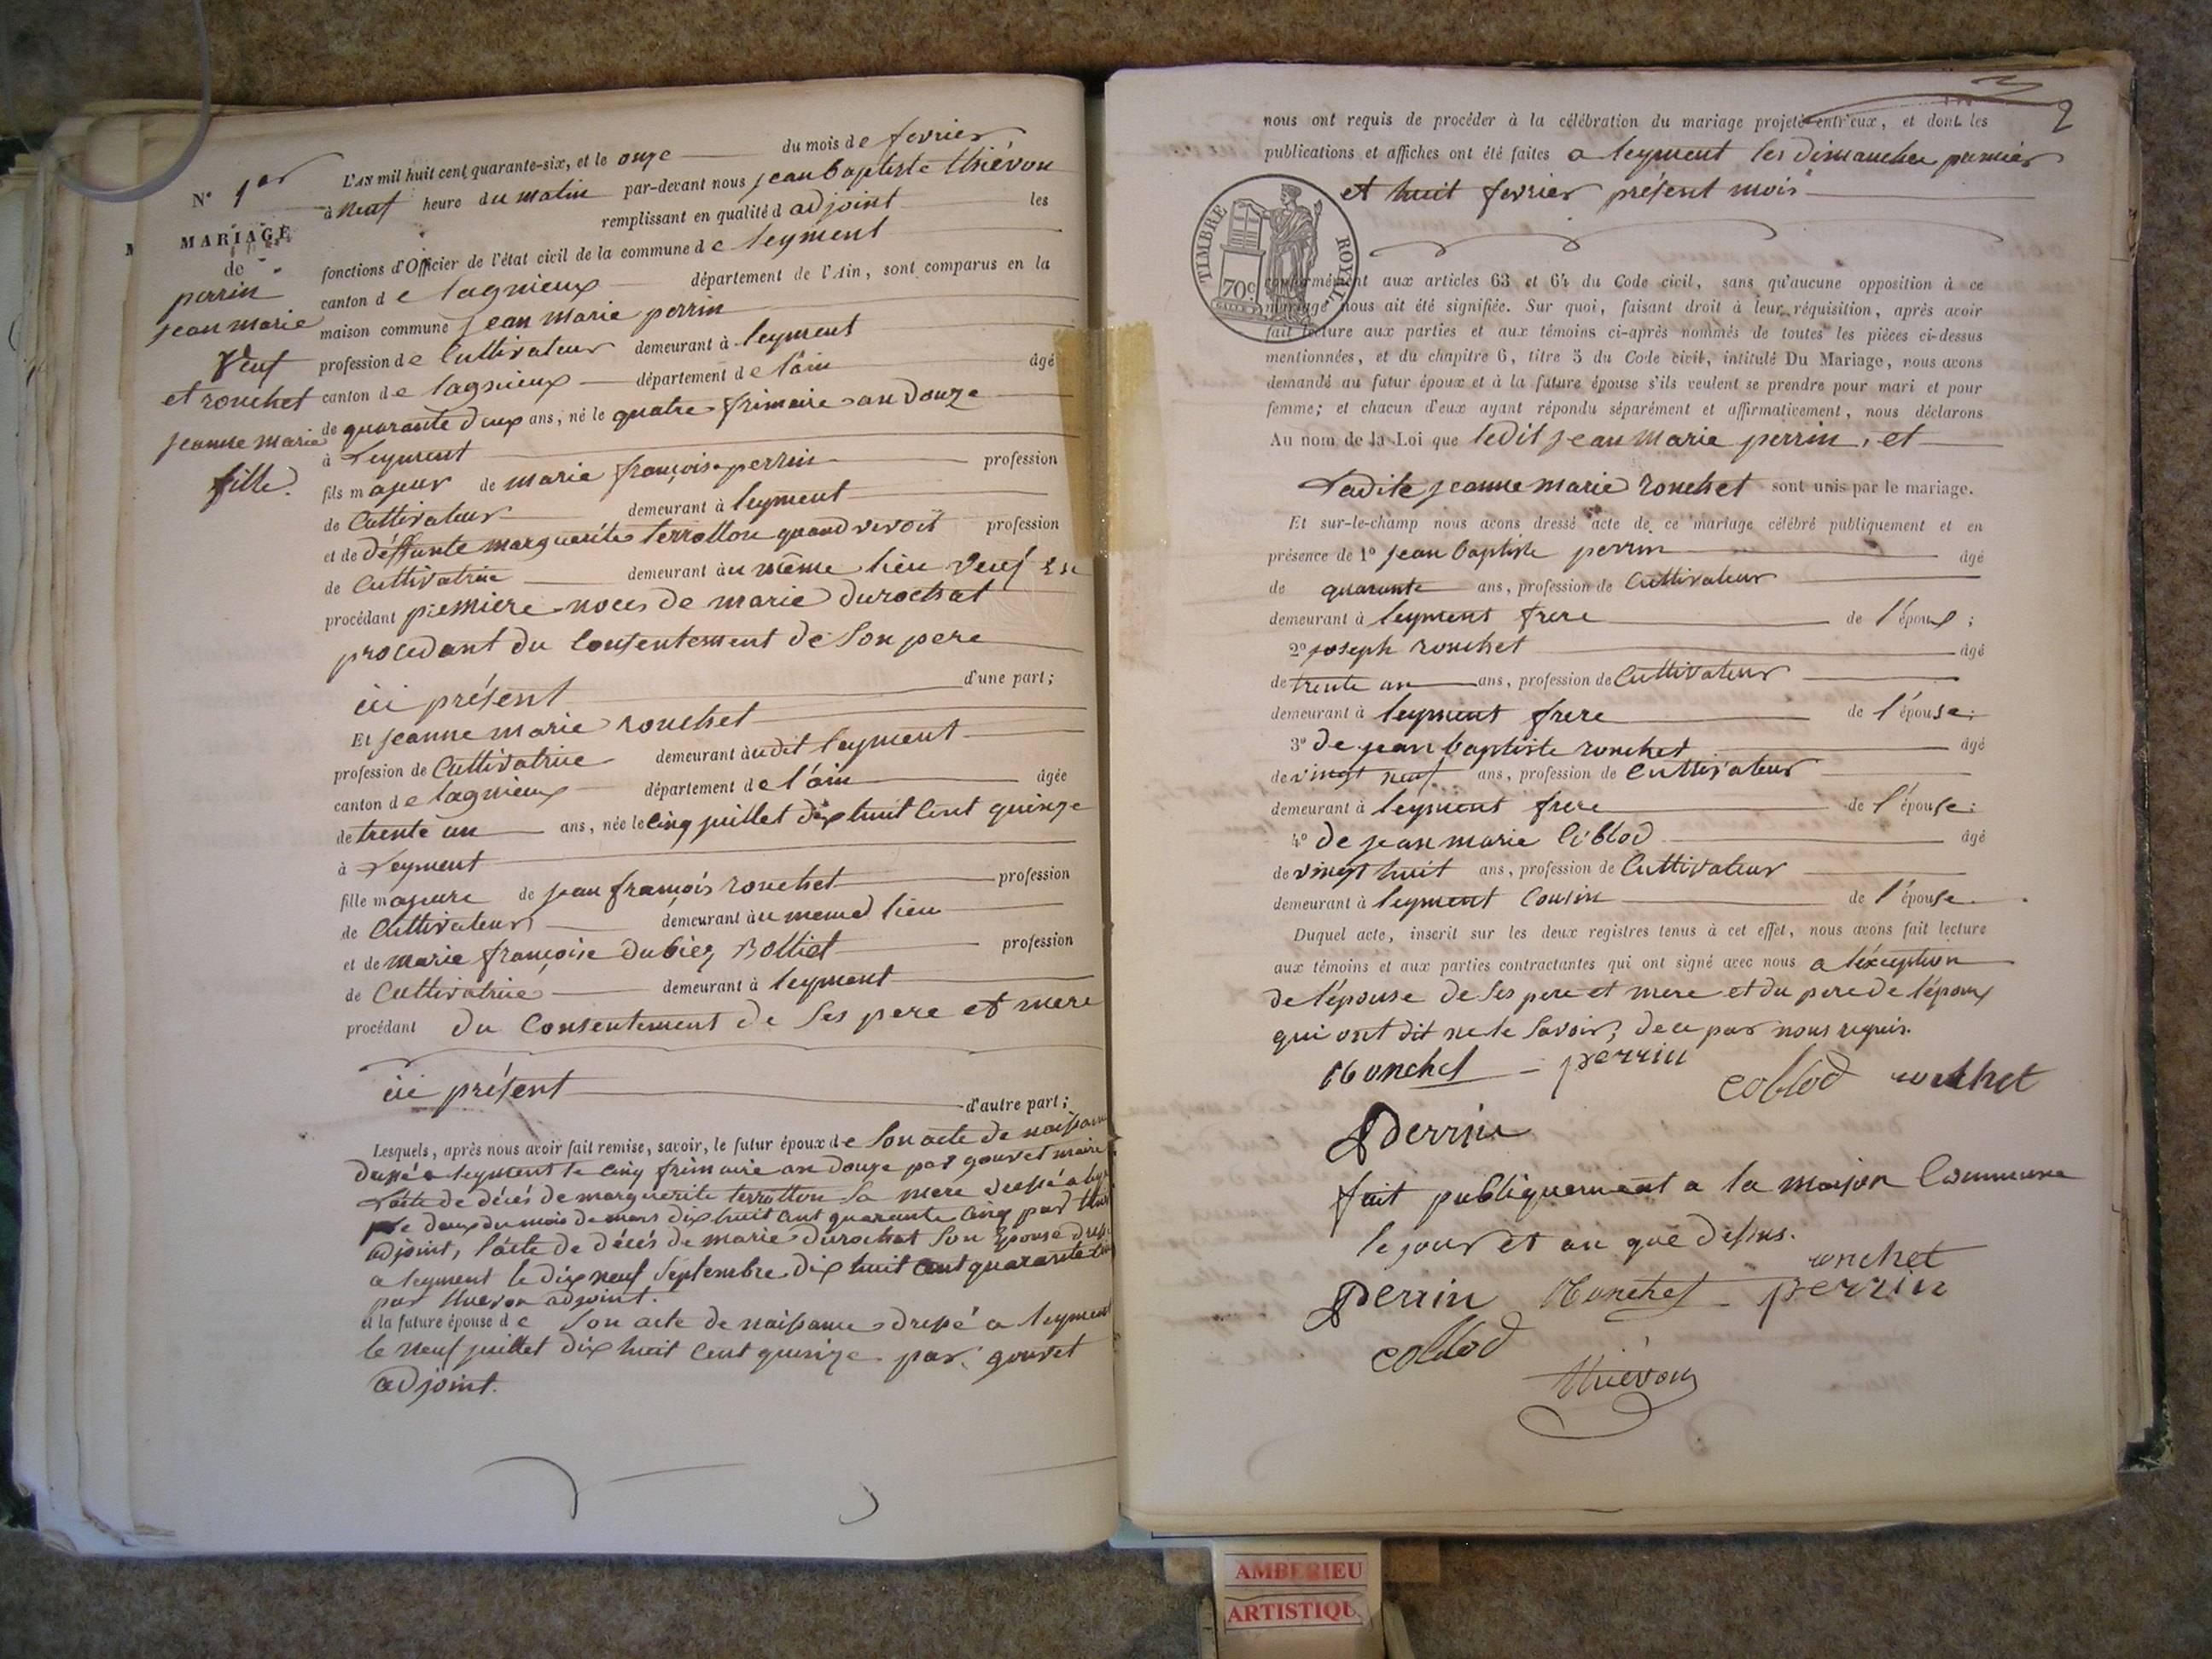 N° 1er
MARIAGE
de
perrin
jean marie
Veuf
et ronchet
jeanne marie
fille.
L'AN mil huit cent quarante-six, et le onze du mois de fevrier
à neuf heure du matin par-devant nous jean baptiste thiévon
remplissant en qualité d adjoint les
fonctions d'Officier de l'état civil de la commune de leyment
canton de lagnieux département de l'Ain, sont comparus en la
maison commune jean marie perrin
profession de Cultivateur demeurant à leyment
canton de lagnieux département de l'ain âgé
de quarante deux ans, né le quatre frimaire an douze
à Leyment
fils majeur de marie françois perrin profession
de Cultivateur demeurant à leyment
et de déffunte marguerite terrotton quand vivoit profession
de Cultivatrice demeurant àu même lieu Veuf en
procédant premiere noces de marie durochat
procedant du Consentement de Son pere
ici présent d'une part;
Et jeanne marie ronchet
profession de Cultivatrice demeurant àudit leyment
canton de lagnieux département de l'ain âgée
de trente un ans, née le cinq juillet dix huit Cent quinze
à Leyment
fille majeure de jean françois ronchet profession
de Cultivateur demeurant àu meme lieu
et de marie françoise dubiez Bolliet profession
de Cultivatrice demeurant à leyment
procédant du Consentement de Ses pere et mere
ici présent d'autre part;
Lesquels, après nous avoir fait remise, savoir, le futur époux de Son acte de naissance
dressé a leyment le cinq frimaire an douze par gouvet maire
L'acte de décés de marguerite terrotton Sa mere dressé a
le deux du mois de mars dix huit cent quarante cinq par
adjoint, l'acte de décés de marie durochat Son Epouse
a leyment le dix neuf Septembre dix huit cent quarante
par thievon adjoint.
et la future épouse de Son acte de naissance dressé a leyment
le neuf juillet dix huit Cent quinze par gouvet
adjoint.
2
nous ont requis de procéder à la célébration du mariage projeté entr'eux, et dont les
publications et affiches ont été faites a leyment les dimanches premier
et huit fevrier présent mois
TIMBRE ROYAL
70c
conformément aux articles 63 et 64 du Code civil, sans qu'aucune opposition à ce
mariage nous ait été signifiée. Sur quoi, faisant droit à leur réquisition, après avoir
fait lecture aux parties et aux témoins ci-après nommés de toutes les pièces ci-dessus
mentionnées, et du chapitre 6, titre 5 du Code civil, intitulé Du Mariage, nous avons
demandé au futur époux et à la future épouse s'ils veulent se prendre pour mari et pour
femme; et chacun d'eux ayant répondu séparément et affirmativement, nous déclarons
Au nom de la Loi que ledit jean marie perrin, et
Ladite jeanne marie ronchet sont unis par le mariage.
Et sur-le-champ nous avons dressé acte de ce mariage célébré publiquement et en
présence de 1° jean baptiste perrin âgé
de quarante ans, profession de Cultivateur
demeurant à leyment frere de l'époux;
2° joseph ronchet âgé
de trente an ans, profession de Cultivateur
demeurant à leyment frere de l'épouse;
3° de jean baptiste ronchet âgé
de vingt neuf ans, profession de Cultivateur
demeurant à leyment frere de l'épouse;
4° de jean marie Coblod âgé
de vingt huit ans, profession de Cultivateur
demeurant à leyment Cousin de l'épouse.
Duquel acte, inscrit sur les deux registres tenus à cet effet, nous avons fait lecture
aux témoins et aux parties contractantes qui ont signé avec nous a l'exception
de l'épouse de Ses pere et mere et du pere de l'époux
qui ont dit ne le Savoir; de ce par nous requis.
Ronchet perrin
coblod ronchet
Perrin
fait publiquement a la maison Commune
le jour et an que dessus.
ronchet
Perrin Ronchet perrin
coblod
thiévon
AMBERIEU
ARTISTIQU